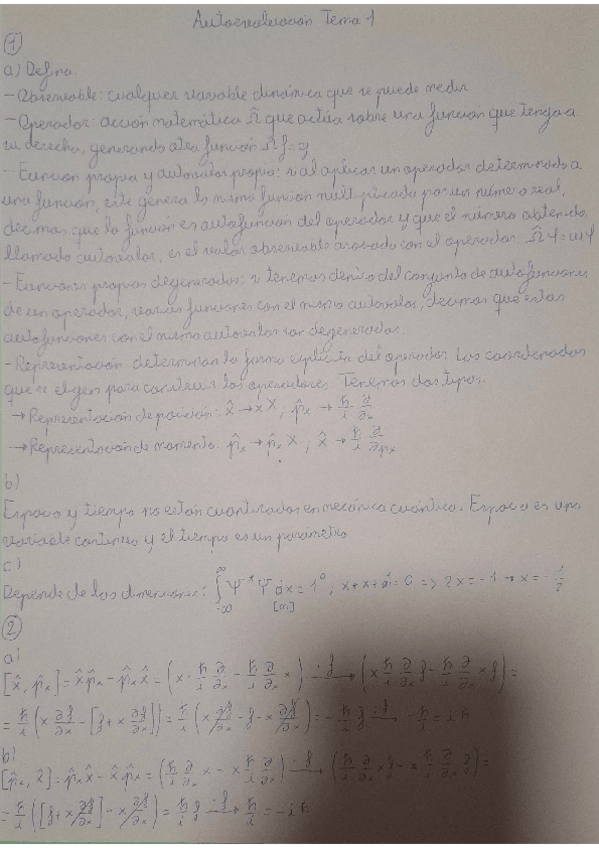 Autoevaluación Tema 1
1
a) Defina.
- Observable: cualquier variable dinámica que se puede medir
- Operador: acción matemática Ω̂ que actúa sobre una función que tenga a
su derecha, generando otra función Ω̂ f = g
- Función propia y autovalor propio: si al aplicar un operador determinado a
una función, este genera la misma función multiplicada por un número real,
decimos que la función es autofunción del operador y que el número obtenido,
llamado autovalor, es el valor observable asociado con el operador. Ω̂ Ψ = ωΨ
- Funciones propias degeneradas: si tenemos dentro del conjunto de autofunciones
de un operador, varias funciones con el mismo autovalor, decimos que estas
autofunciones con el mismo autovalor son degeneradas.
- Representación: determinan la forma explícita del operador. Las coordenadas
que se eligen para construir los operadores. Tenemos dos tipos.
→ Representación de posición: x̂ → x X ; p̂x → ħ/i ∂/∂x
→ Representación de momento: p̂x → p̂x X ; x̂ → ħ/i ∂/∂px
b)
Espacio y tiempo no están cuantizados en mecánica cuántica. Espacio es una
variable continua y el tiempo es un parámetro
c)
Depende de las dimensiones: ∫_{-∞}^{∞} Ψ* Ψ dx = 1⁰ ; x + x + 1 = 0 => 2x = -1 → x = -1/2
[m]
2
a)
[x̂, p̂x] = x̂p̂x - p̂xx̂ = (x · ħ/i ∂/∂x - ħ/i ∂/∂x x) —·f→ (x ħ/i ∂/∂x f - ħ/i ∂/∂x x f) =
= ħ/i (x ∂f/∂x - [f + x ∂f/∂x]) = ħ/i (x ∂f/∂x - f - x ∂f/∂x) = - ħ/i f —:f→ - ħ/i = iħ
b)
[p̂x, x̂] = p̂xx̂ - x̂p̂x = (ħ/i ∂/∂x x - x ħ/i ∂/∂x) —·f→ (ħ/i ∂/∂x x f - x ħ/i ∂/∂x f) =
= ħ/i ([f + x ∂f/∂x] - x ∂f/∂x) = ħ/i f —:f→ ħ/i = -iħ